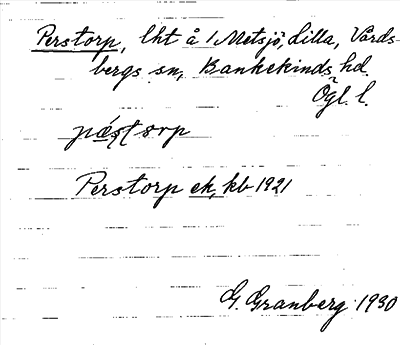 Perstorp, lht å 1 Metsjö, Lilla, Vårds-
bergs sn, Bankekinds hd.
Ögl. l.
Perstorp ek, kb 1921
G. Granberg 1930